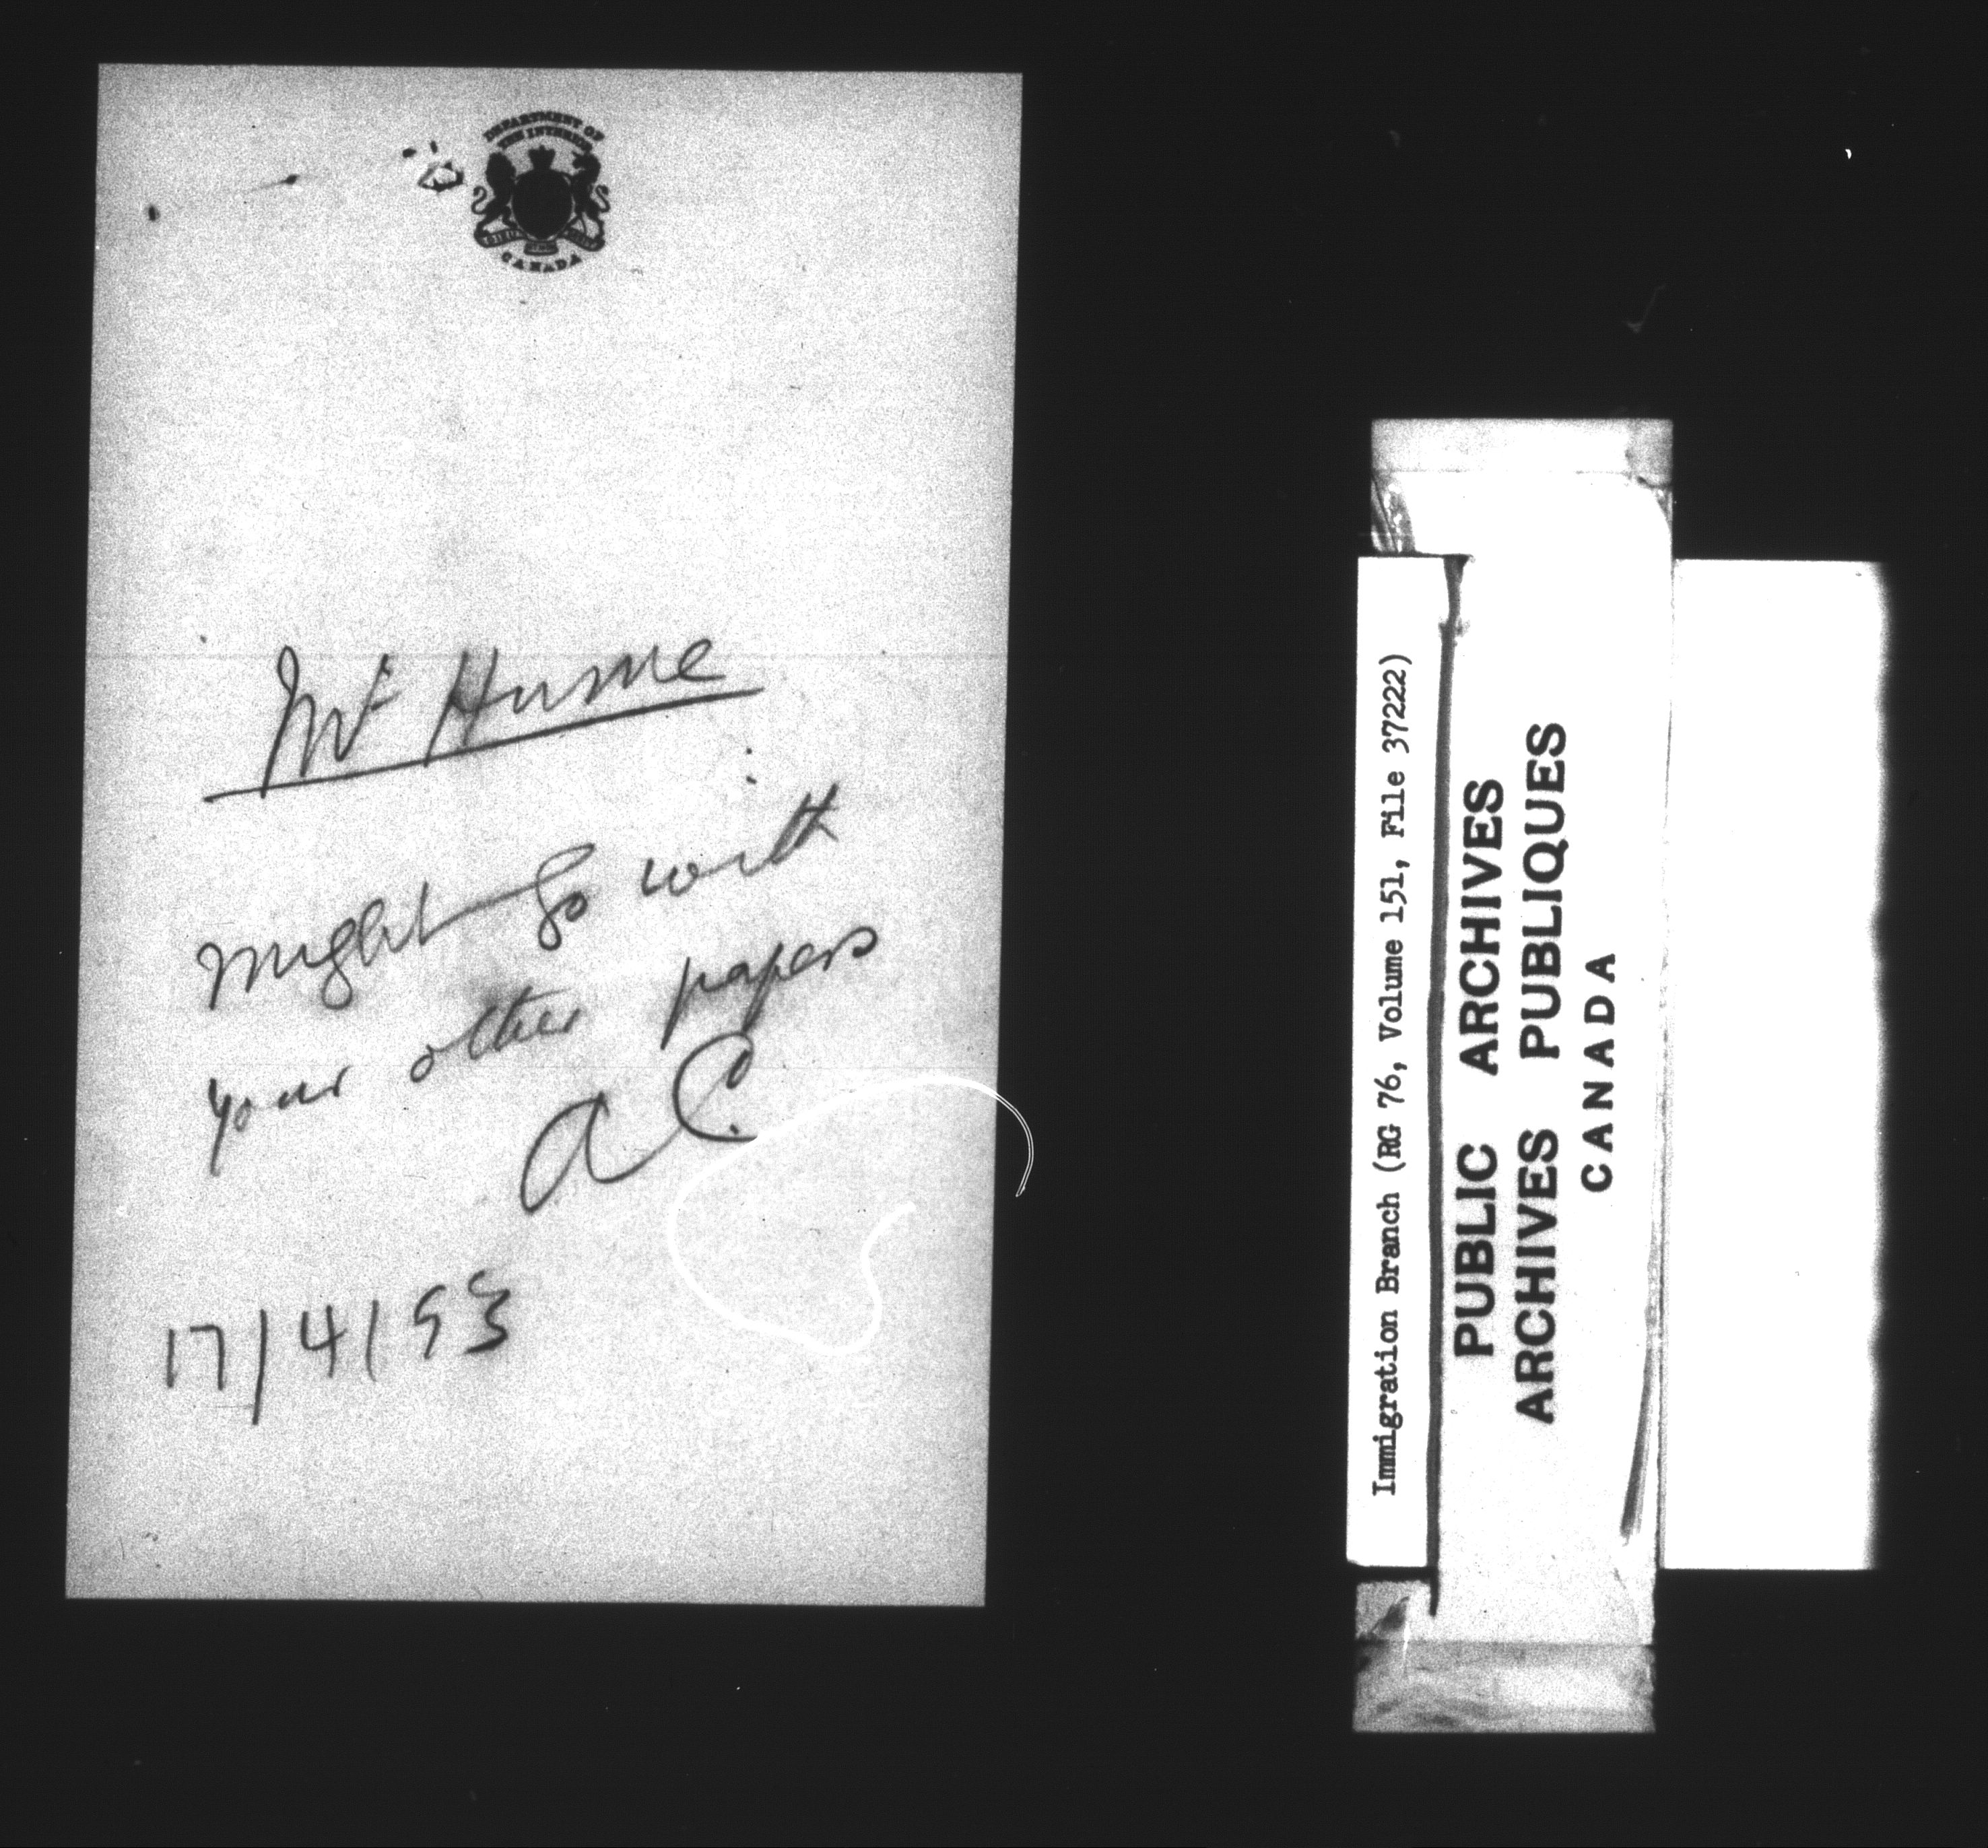 DEPARTMENT OF
THE INTERIOR
CANADA
Mr Hume
might go with
your other papers
AC
17/4/93
Immigration Branch (RG 76, Volume 151, File 37222)
PUBLIC ARCHIVES
ARCHIVES PUBLIQUES
CANADA